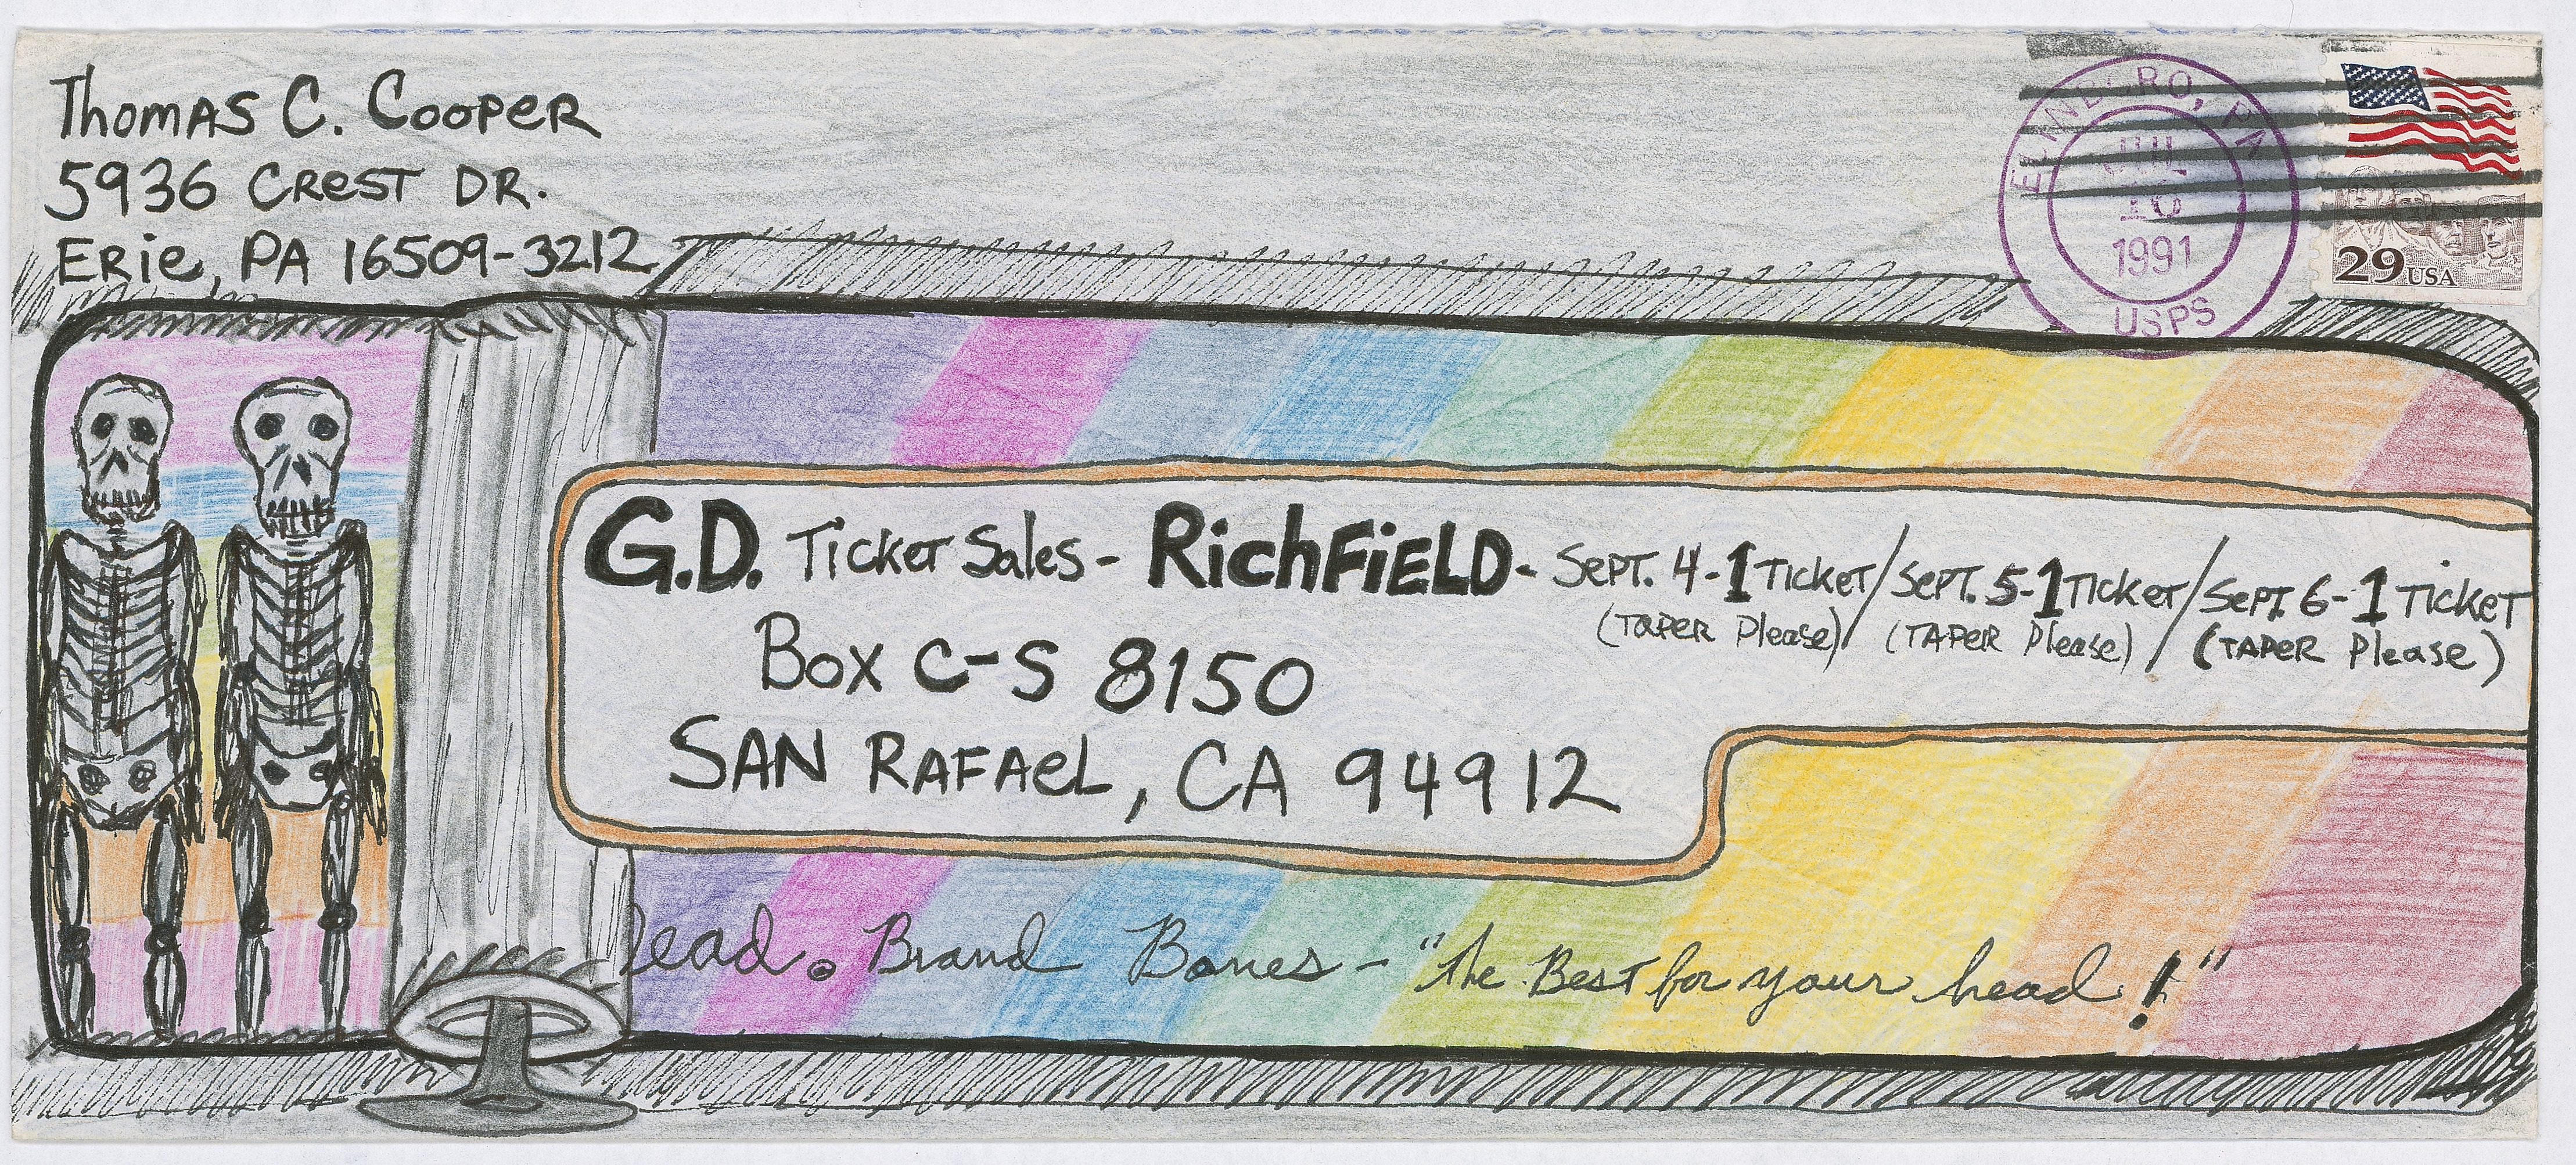 Thomas C. Cooper
5936 Crest DR.
Erie, PA 16509-3212
EDINBORO, PA
JUL
16
1991
USPS
29 USA
G.D. Ticket Sales - RichFiELD - Sept. 4-1 Ticket/Sept. 5-1 Ticket/Sept 6-1 Ticket
(TAPER Please)/(TAPER Please)/(TAPER Please)
Box C-S 8150
SAN RAFAEL, CA 94912
Dead. Brand Bones - "the Best for your head!"